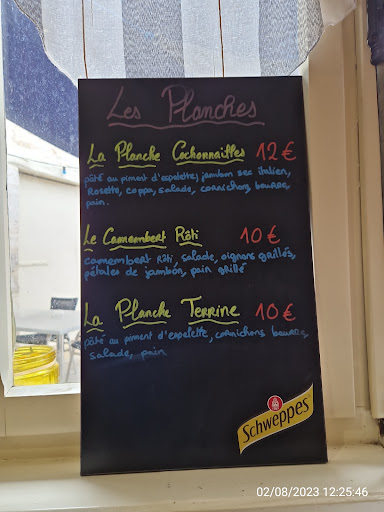 Les Planches
La Planche Cochonnailles 12 €
pâté au piment d'espelette, jambon sec italien,
Rosette, coppa, salade, cornichons beurre,
pain.
Le Camembert Rôti 10 €
camembert Rôti, salade, oignons grillés,
pétales de jambon, pain grillé
La Planche Terrine 10 €
pâté au piment d'espelette, cornichons beurre,
salade, pain
Schweppes
02/08/2023 12:25:46